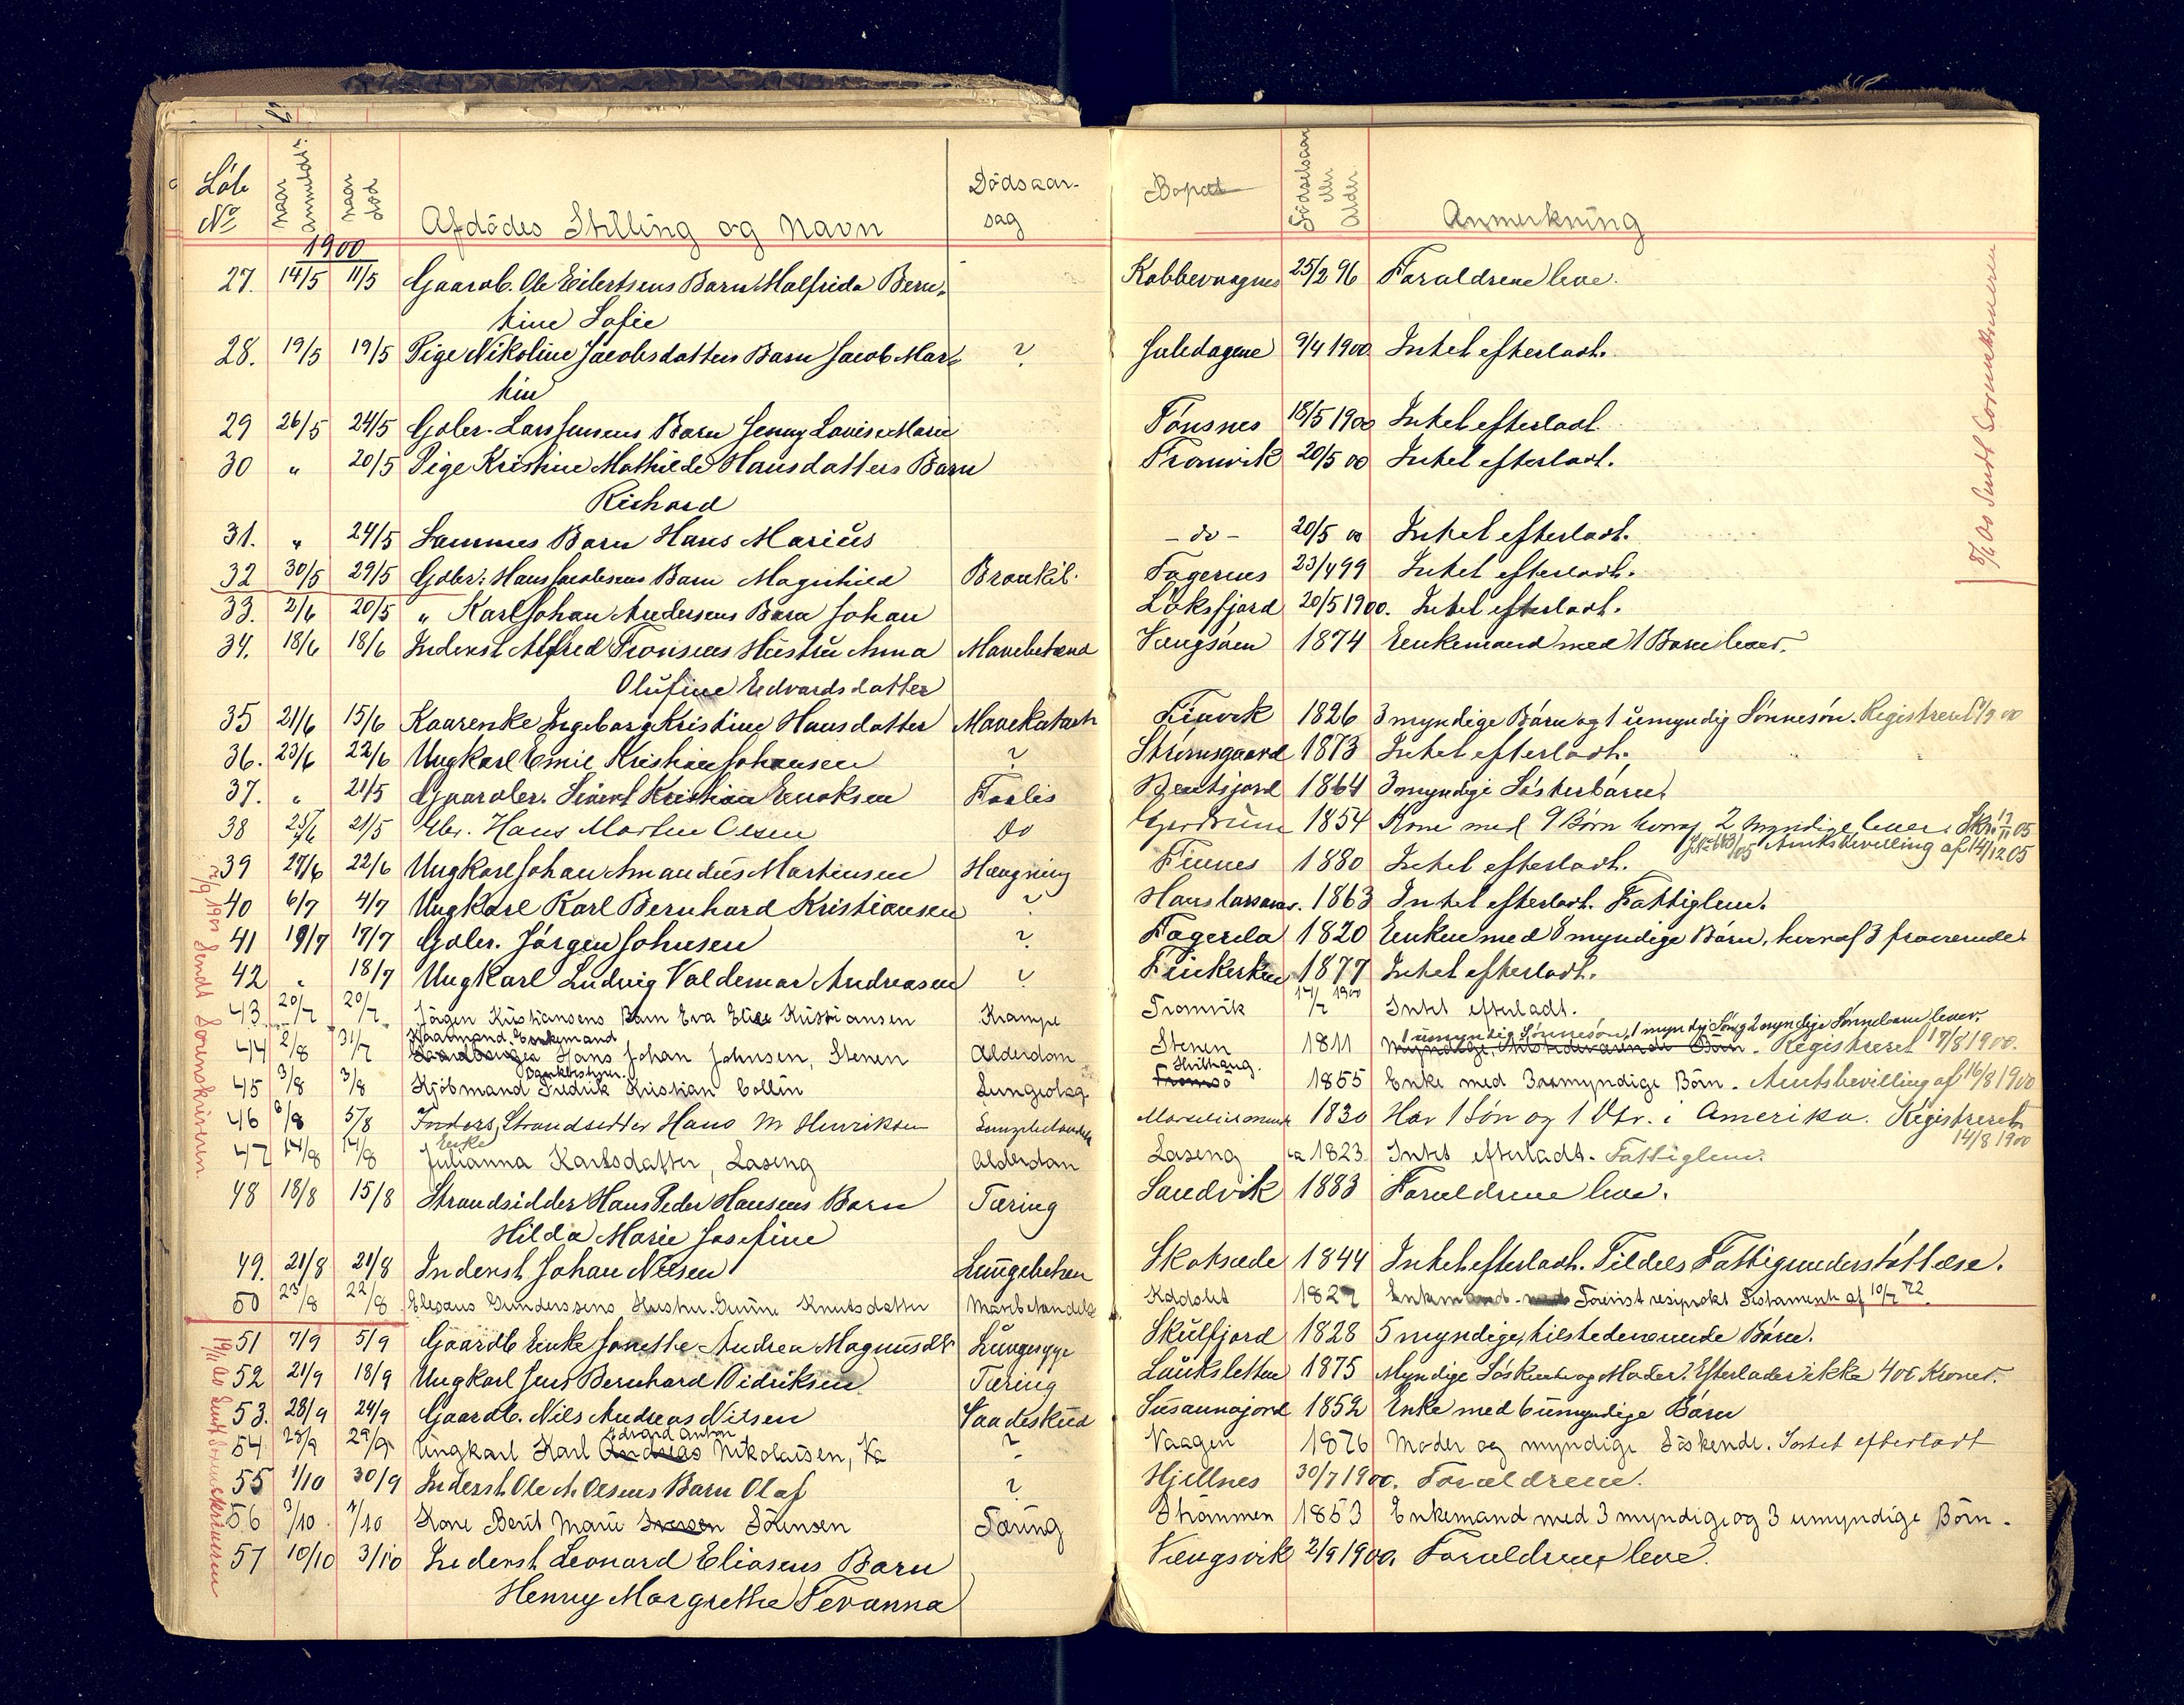 Løb
No
naar
anmeldt
naar
død
Afdødes Stilling og Navn
Dødsaar-
sag
Bopæl
Fødselsaar
eller
Alder
Anmerkning
1900
27. 14/5 11/5 Gaardb. Ole Eilertsens Barn Halfrida Bern- Kobbevaagnes 25/2 96 Forældrene leve.
tine Sofie
28. 19/5 19/5 Pige Nikoline Jacobsdatters Barn Jacob Mar- ? Juledagene 9/4 1900 Intet efterladt.
tin
29 26/5 24/5 Gdbr. Lars Jensens Barn Jenny Lovise Marie Tønsnes 18/5 1900 Intet efterladt.
30 " 20/5 Pige Kristine Mathilde Hansdatters Barn Tromvik 20/5 00 Intet efterladt.
Richard
31. " 24/5 Sammes Barn Hans Marius - do - 20/5 00 Intet efterladt.
32 30/5 29/5 Gdbr. Hans Jacobsens Barn Magnhild Bronkit. Fagernes 23/4 99 Intet efterladt.
33. 2/6 20/5 " Karl Johan Andersens Barn Johan Løksfjord 20/5 1900. Intet efterladt.
34. 18/6 18/6 Inderst Alfred Tronsens Hustru Anna Mavebetænd Vængsøen 1874 Enkemand med 1 Barn lever.
Olufine Edvardsdatter
35 21/6 15/6 Kaarenke Ingeborg Kristine Hansdatter Mavekatarh Finvik 1826 3 myndige Børn og 1 umyndig Sønnesøn. Registreret 1/9 00
36. 23/6 22/6 Ungkarl Emil Kristian Johansen ? Strømsgaard 1873 Intet efterladt.
37. " 21/5 Gaardbr. Sivert Kristian Enoksen Forlis Bentsjord 1864 3 myndige Søsterbørn.
38 25/6 21/5 Gbr. Hans Martin Olsen Do Gjerdrum 1854 Kone med 9 Børn hvoraf 2 myndige lever. Skr. 17/11 05
Amtsbevilling af 14/12 05
39 27/6 22/6 Ungkarl Johan Amandus Martinsen Hængning Finnes 1880 Intet efterladt.
40 6/7 4/7 Ungkarl Karl Bernhard Kristiansen ? 1863 Intet efterladt. Fattiglem.
41 19/7 17/7 Gdbr. Jørgen Johnsen ? Fagerela 1820 Enken med 8 myndige Børn, hvoraf 3 fraværende
42 " 18/7 Ungkarl Ludvig Valdemar Andreasen ? Finkerken 1877 Intet efterladt.
43 20/7 20/7 Jørgen Kristiansens Barn Eva Elise Kristiansen Krampe Tromvik 17/7 1900 Intet efterladt.
Kaarmand. Enkemand 1 umyndig Sønnesøn, 1 myndig Søn og 2 myndige Sønnebørn lever.
44 2/8 31/7 Hans Johan Johnsen, Stenen Alderdom Stenen 1811 Registreret 17/8 1900.
Bankbestyrer. Skrithaug.
45 3/8 3/8 Kjøbmand Fredrik Kristian Collin Lungeslag Tromsø 1855 Enke med 3 umyndige Børn. Amtsbevilling af 16/8 1900
46 6/8 5/8 Inders, Strandsitter Hans M Henriksen 1830 Har 1 Søn og 1 Dtr. i Amerika. Registreret
14/8 1900
Enke
47 14/8 14/8 Julianna Karlsdatter, Laseng Alderdom Laseng ca 1823 Intet efterladt. Fattiglem.
48 18/8 15/8 Strandsidder Hans Peder Hansens Barn Tæring Sandvik 1883 Forældrene leve.
Hilda Marie Josefine
49. 21/8 21/8 Inderst Johan Nilsen Lungebetæn Skotsæde 1844 Intet efterladt. Tildels Fattigunderstøttelse.
50 23/8 22/8 Gunderssens Hustru Gurine Knutsdatter 1827 Enkemand. Testament af 10/7 72
51 7/9 5/9 Gaardb Enke Janethe Andrea Magnusdtr Lungesyge Skulfjord 1828 5 myndige, tilstedeværende Børn.
52 21/9 18/9 Ungkarl Jens Bernhard Didriksen Tæring Laukslетten 1875 Myndige Søskende og Moder. Efterlader ikke 400 Kroner.
53. 28/9 24/9 Gaardb. Nils Andreas Nilsen Vaadeskud Susannajord 1852 Enke med 6 umyndige Børn
Edvard Anton
54 28/9 29/9 Ungkarl Karl Andreas Nikolaisen, Va ? Vaagen 1876 Moder og myndige Søskende. Intet efterladt
55 1/10 30/9 Inderst Ole A. Olsens Barn Olaf ? Hjellnes 30/7 1900. Forældrene.
56 9/10 7/10 Kone Berit Marie Iversen Sørensen Tæring Strømmen 1853 Enkemand med 3 myndige og 3 umyndige Børn.
57 10/10 3/10 Inderst Leonard Eliasens Barn Vængsvik 2/9 1900. Forældrene leve.
Henny Margrethe Tevanna
7/9 1900 Sendt Sorenskriveren.
19/11 00 Sendt Sorenskriveren
Sendt Sorenskriveren